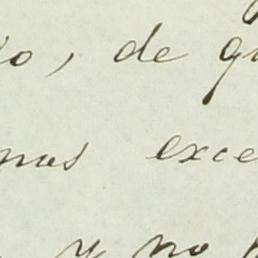 o, de qu
mas exce
y no